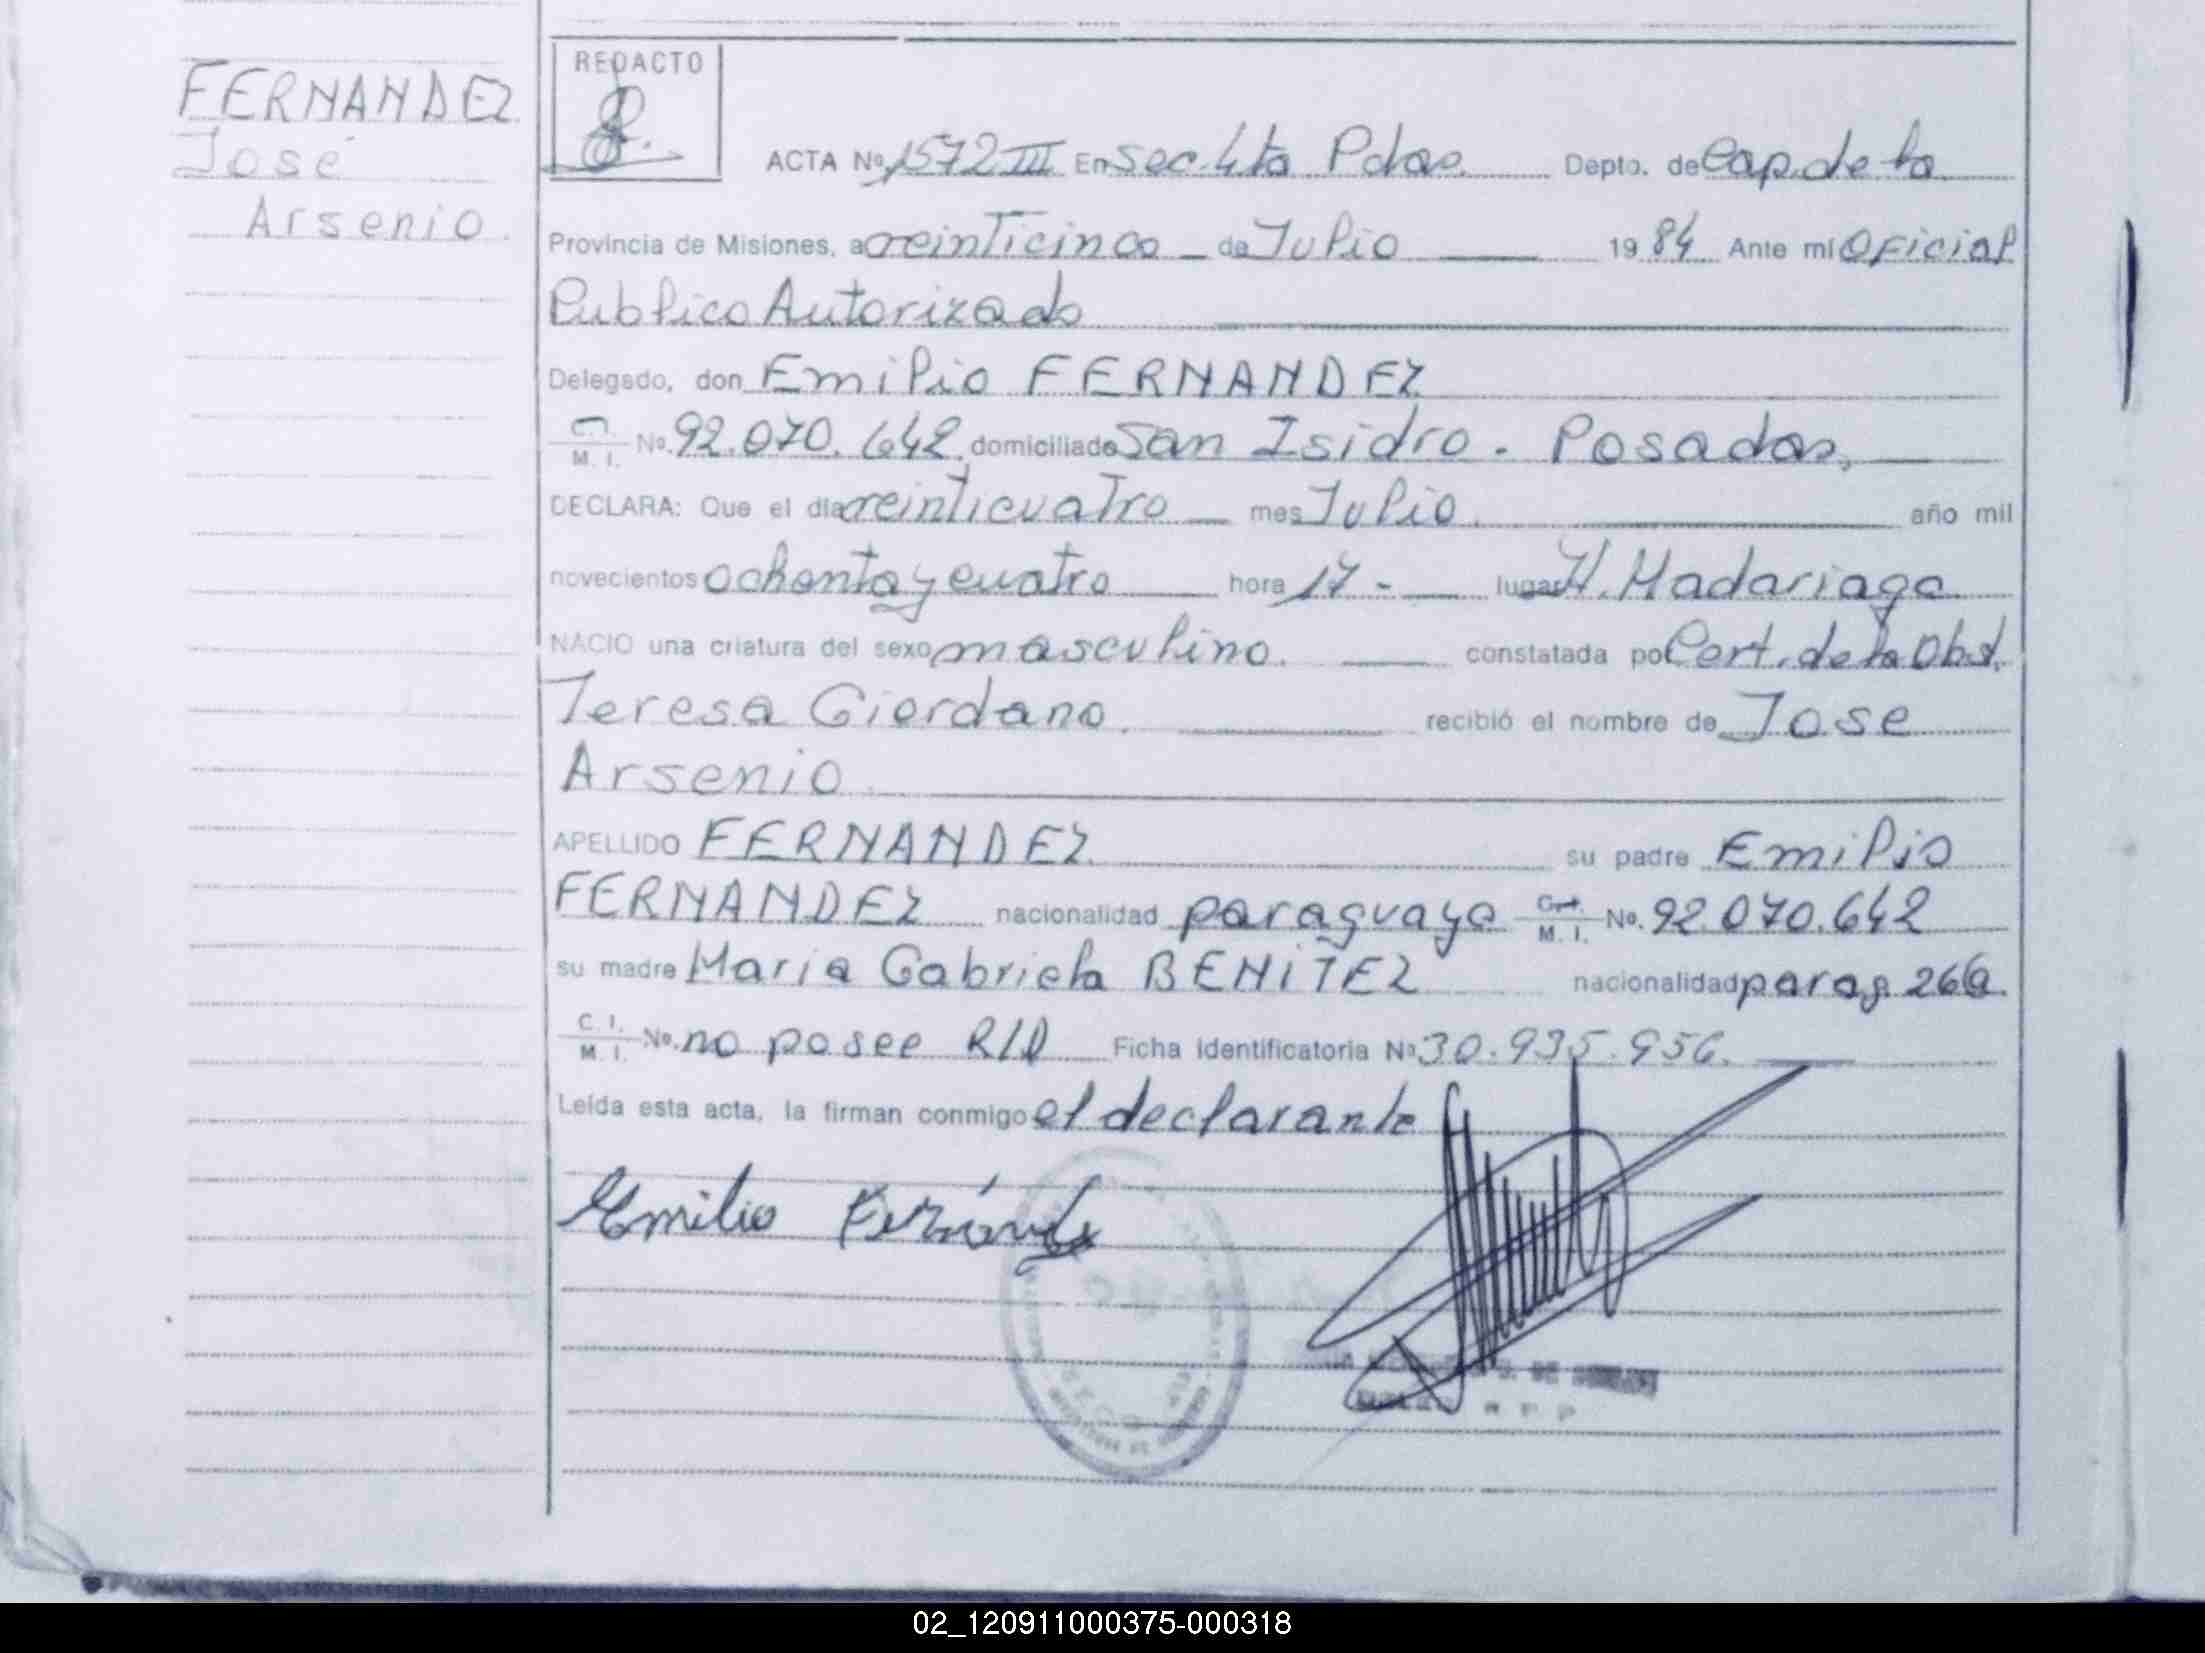 FERNANDEZ
José
Arsenio.
REDACTO
ACTA No. 1572 III En Sec. 4ta Pdas. Depto. de Cap. de la
Provincia de Misiones, a veinticinco de Julio 1984 Ante mí Oficial
Publico Autorizado
Delegado, don Emilio FERNANDEZ
C. I. M. I. No. 92.070.642 domiciliado San Isidro - Posadas,
DECLARA: Que el día veinticuatro mes Julio. año mil
novecientos ochenta y cuatro hora 17 - lugar H. Madariaga
NACIO una criatura del sexo masculino. constatada por Cert. de la Obst.
Teresa Giordano. recibió el nombre de Jose
Arsenio.
APELLIDO FERNANDEZ su padre Emilio
FERNANDEZ nacionalidad paraguayo M. I. No. 92.070.642
su madre Maria Gabriela BENITEZ nacionalidad parag. 26a.
C. I. M. I. No. no posee R/D Ficha identificatoria No 30.935.956.
Leída esta acta, la firman conmigo el declarante
Emilio Fernández
02_120911000375-000318